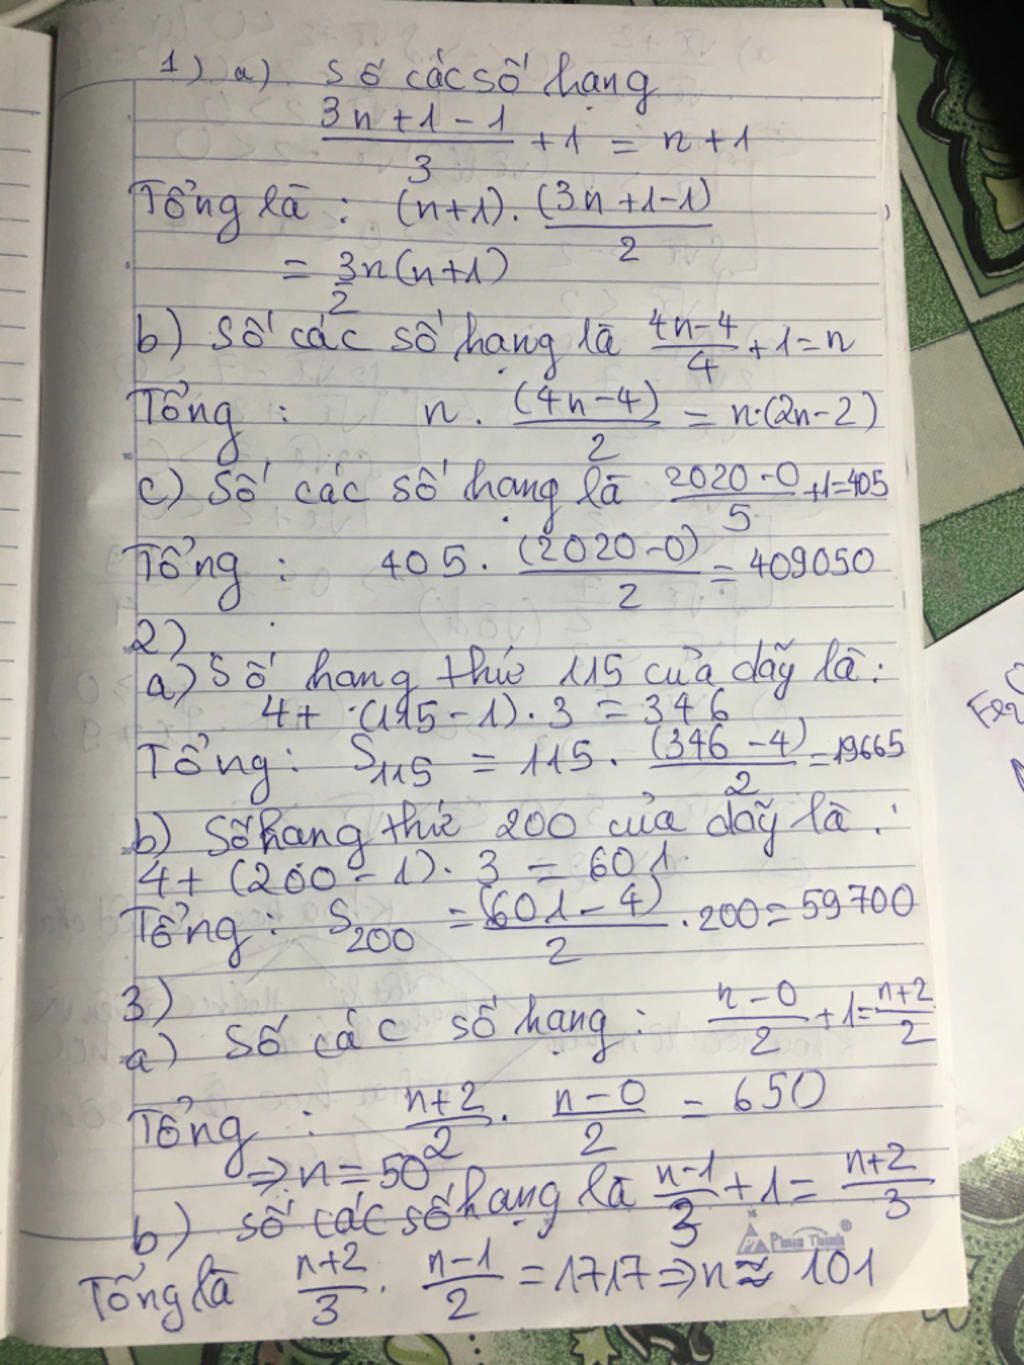 1) a) Số các số hạng
(3n+1-1)/3 + 1 = n+1
Tổng là : (n+1) . (3n+1-1)/2
= 3/2 n(n+1)
b) Số các số hạng là (4n-4)/4 + 1 = n
Tổng : n . (4n-4)/2 = n.(2n-2)
c) Số các số hạng là (2020-0)/5 + 1 = 405
Tổng : 405 . (2020-0)/2 = 409050
2)
a) Số hạng thứ 115 của dãy là :
4 + (115-1) . 3 = 346
Tổng : S₁₁₅ = 115 . (346-4)/2 = 19665
b) Số hạng thứ 200 của dãy là :
4 + (200-1) . 3 = 601
Tổng : S₂₀₀ = (601-4)/2 . 200 = 59700
3)
a) Số các số hạng : (n-0)/2 + 1 = (n+2)/2
Tổng : (n+2)/2 . (n-0)/2 = 650
⇒ n = 50
b) Số các số hạng là (n-1)/3 + 1 = (n+2)/3
Phúc Thịnh®
Tổng là (n+2)/3 . (n-1)/2 = 1717 ⇒ n ≈ 101